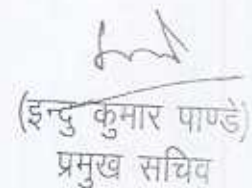 (इन्दु कुमार पाण्डे)
प्रमुख सचिव